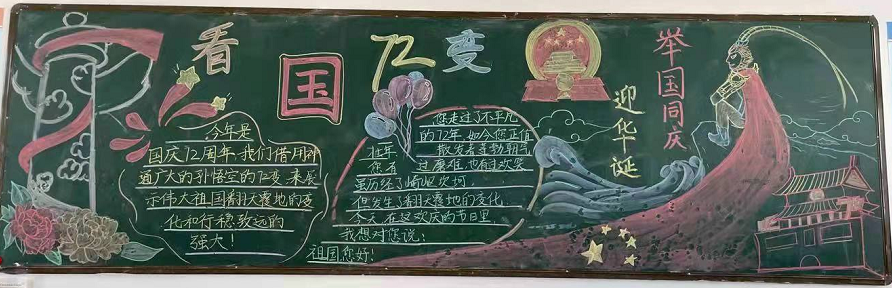 看
国
72
变
举国同庆
迎华诞
今年是
国庆72周年,我们借用神
通广大的孙悟空的72变,来展
示伟大祖国翻天覆地的变
化和行稳致远的
强大!
您走过了不平凡
的72年,如今您正值
壮年 散发着蓬勃朝气
您有 过磨难,也有过欢笑
虽历经了崎岖坎坷,
但发生了翻天覆地的变化,
今天,在这欢庆的节日里,
我想对您说:
祖国您好!